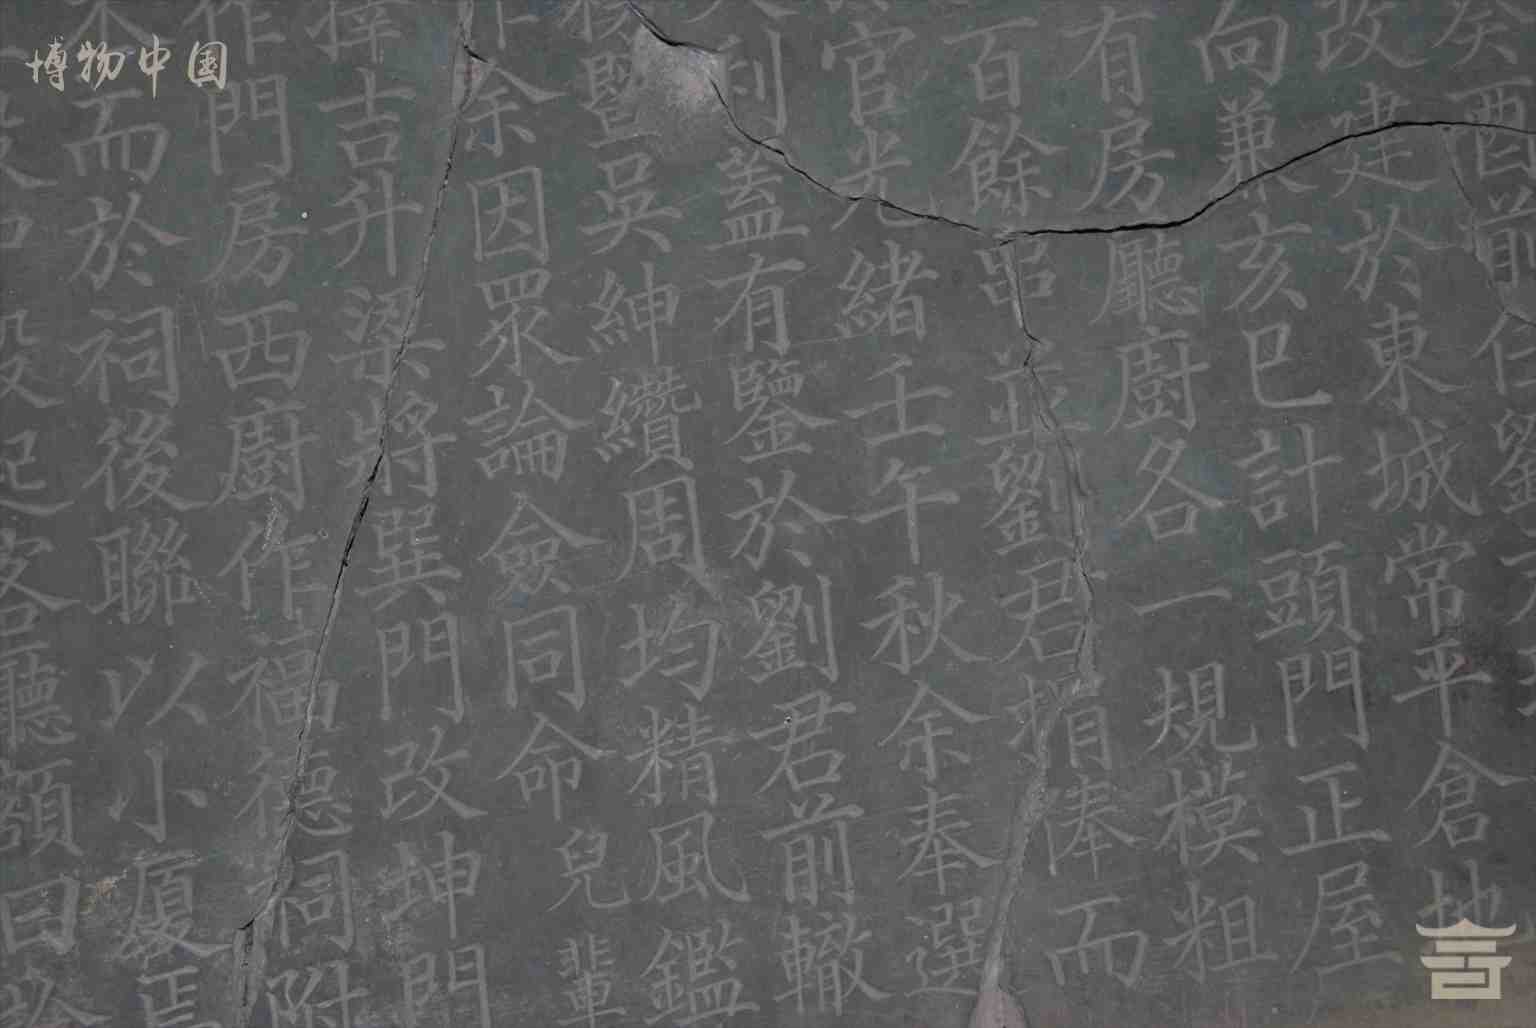 博物中国
矣酉前任劉
改建於東城常平倉地
向兼亥巳計頭門正屋
有房廳廚各一規模粗
百餘串並劉君捐俸而
官光緒壬午秋余奉選
利蓋有鑒於劉君前轍
暨吳紳纘周均精風鑑
余因眾論僉同命兒輩
擇吉升梁將巽門改坤門
作門房西廚作福德祠附
而於祠後聯以小厦焉
設起客廳額曰